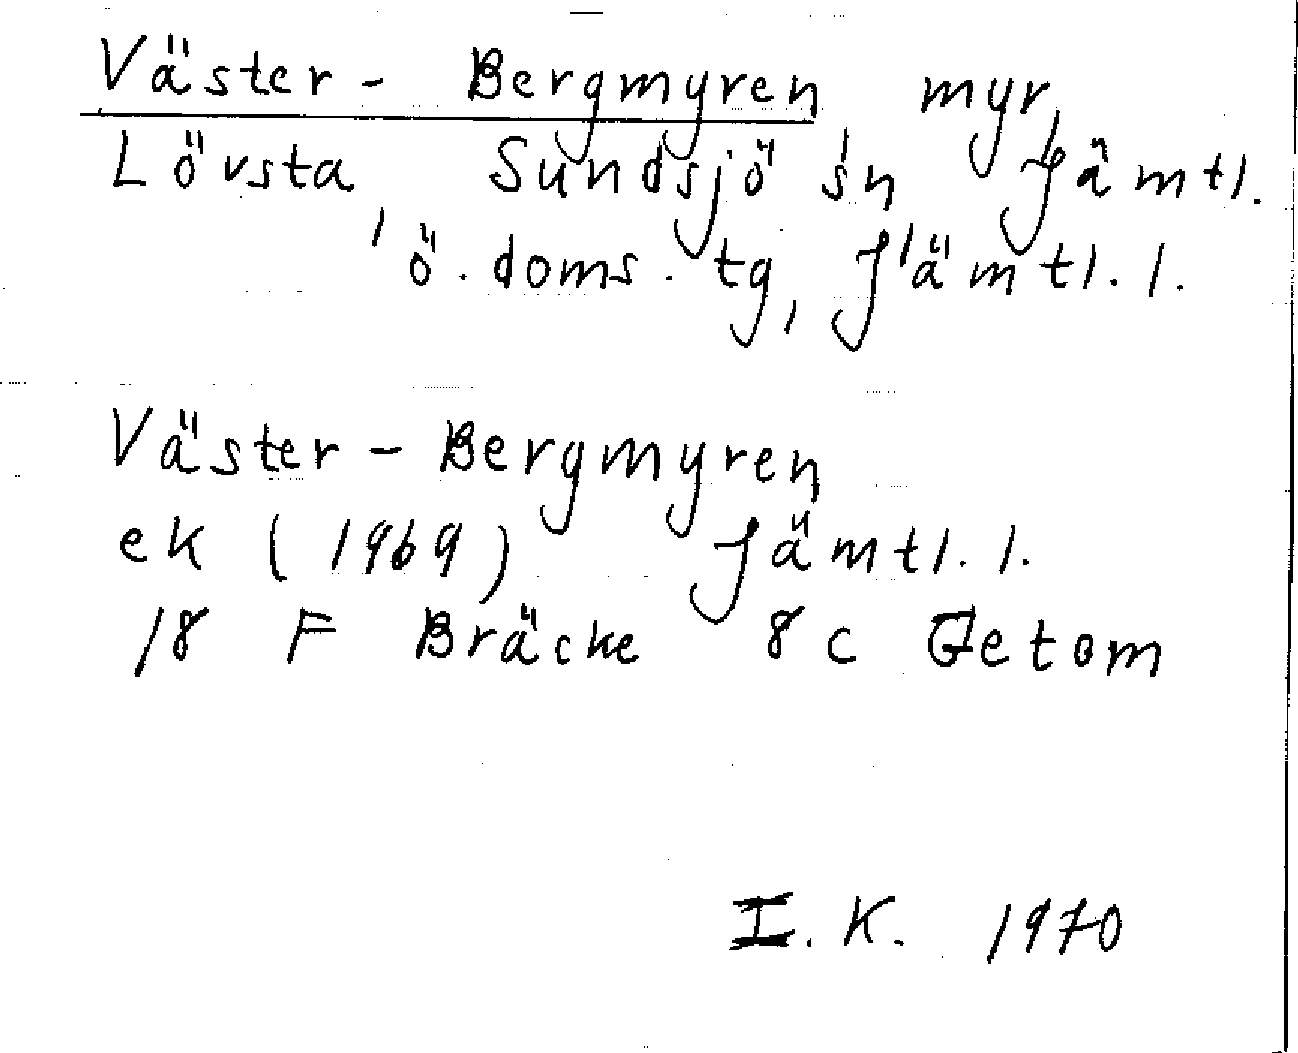 Väster-Bergmyren myr,
Lövsta Sundsjö sn, Jämtl.
ö. doms. tg, Jämtl. l.
Väster-Bergmyren
ek (1969) Jämtl. l.
18 F Bräcke 8 c Getom
I. K. 1970